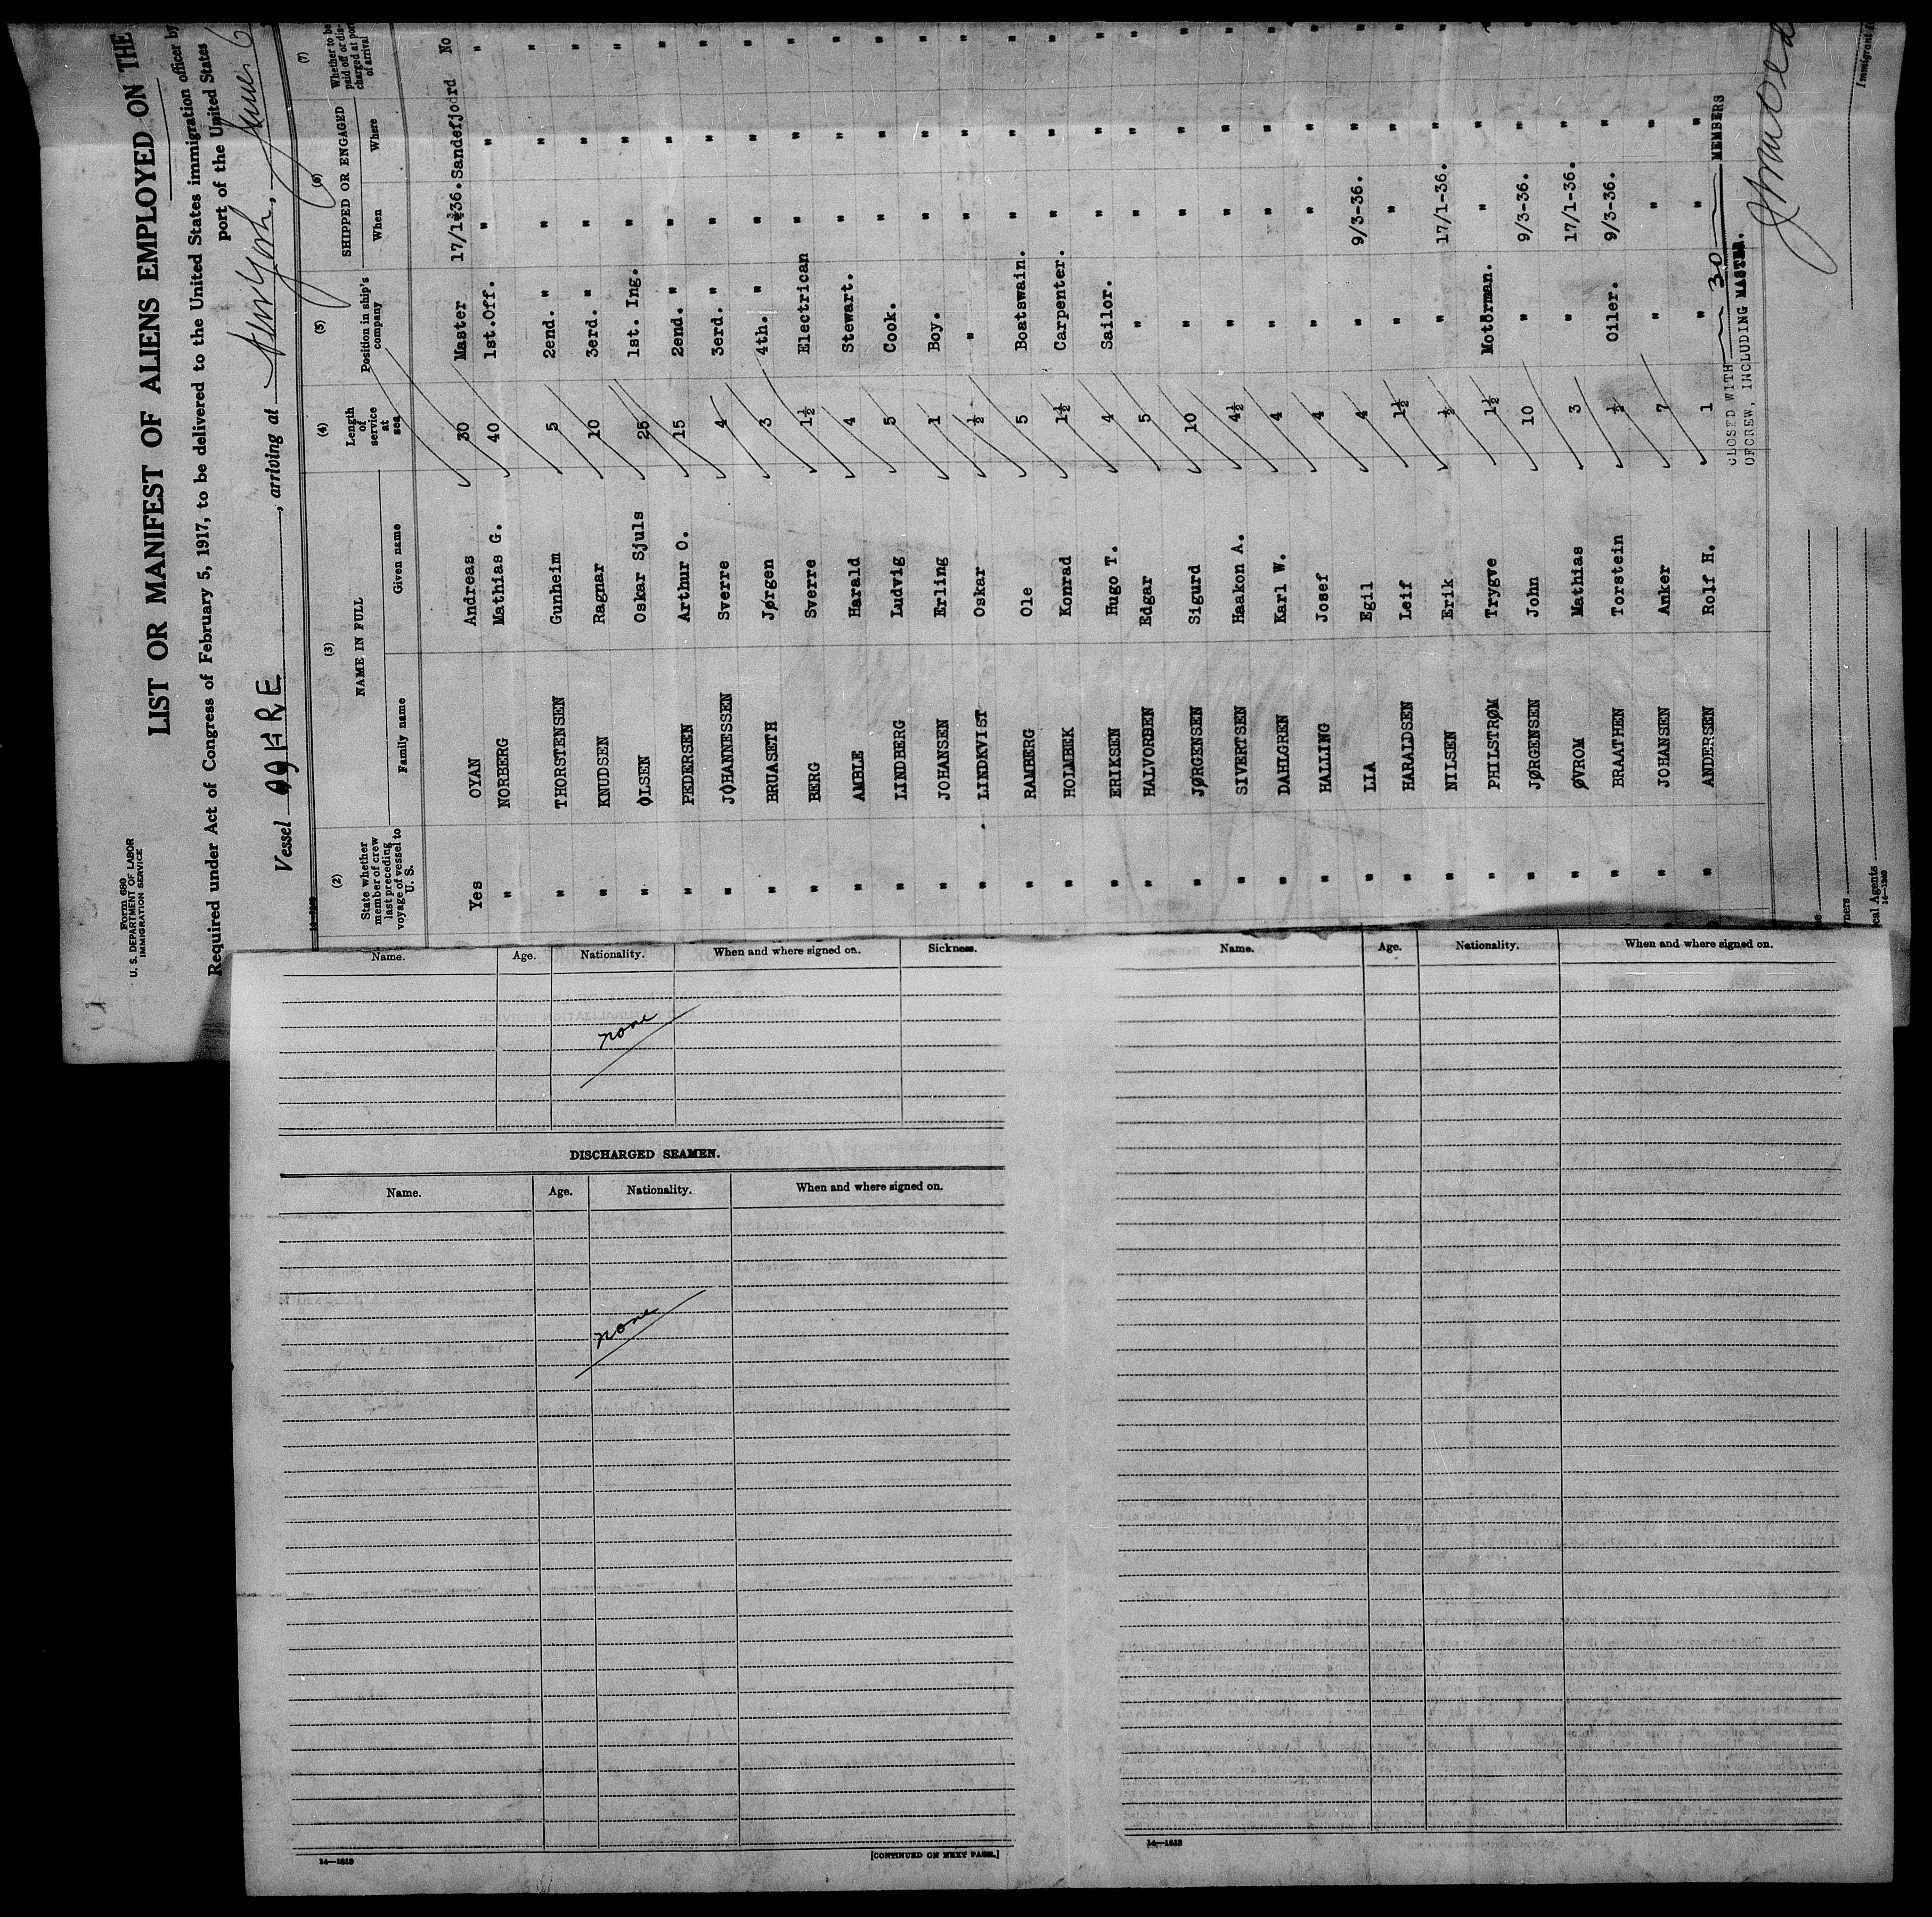 Form 680
U. S. DEPARTMENT OF LABOR
IMMIGRATION SERVICE
LIST OR MANIFEST OF ALIENS EMPLOYED ON THE
Required under Act of Congress of February 5, 1917, to be delivered to the United States immigration officer by
port of the United States
Vessel , arriving at New York, June 6
(2) (3) (4) (5) (6) (7)
State whether member of crew last preceding voyage of vessel to U. S. NAME IN FULL Length of service at sea Position in ship's company SHIPPED OR ENGAGED Whether to be paid off or dis-charged at port of arrival
Family name Given name When Where
Yes OYAN Andreas 30 Master 17/1-36. Sandefjord No
" NORBERG Mathias G. 40 1st.Off. " " "
" THORSTENSEN Gunheim 5 2end. " " " "
" KNUDSEN Ragnar 10 3erd. " " " "
" OLSEN Oskar Sjuls 25 1st. Ing. " " "
" PEDERSEN Arthur O. 15 2end. " " " "
" JOHANNESSEN Sverre 4 3erd. " " " "
" BRUASETH Jørgen 3 4th. " " " "
" BERG Sverre 1½ Electrican " " "
" AMBLE Harald 4 Stewart. " " "
" LINDBERG Ludvig 5 Cook. " " "
" JOHANSEN Erling 1 Boy. " " "
" LINDKVIST Oskar ½ " " " "
" RAMBERG Ole 5 Boatswain. " " "
" HOLMBEK Konrad 1½ Carpenter. " " "
" ERIKSEN Hugo T. 4 Sailor. " " "
" HALVORBEN Edgar 5 " " " "
" JØRGENSEN Sigurd 10 " " " "
" SIVERTSEN Haakon A. 4½ " " " "
" DAHLGREN Karl W. 4 " " " "
" HALLING Josef 4 " " " "
" LIA Egil 4 " 9/3-36. " "
" HARALDSEN Leif 1½ " " " "
" NILSEN Erik ½ " 17/1-36. " "
" PHILSTRØM Trygve 1½ Motörman. " " "
" JØRGENSEN John 10 " 9/3-36. " "
" ØVROM Mathias 3 " 17/1-36. " "
" BRAATHEN Torstein ½ Oiler. 9/3-36. " "
" JOHANSEN Anker 7 " " " "
" ANDERSEN Rolf H. 1 " " "
CLOSED WITH 30 MEMBERS
OF CREW, INCLUDING MASTER.
14—1240
Name. Age. Nationality. When and where signed on. Sickness.
none
DISCHARGED SEAMEN.
Name. Age. Nationality. When and where signed on.
none
14—1613
[CONTINUED ON NEXT PAGE.]
Name. Age. Nationality. When and where signed on.
14—1613